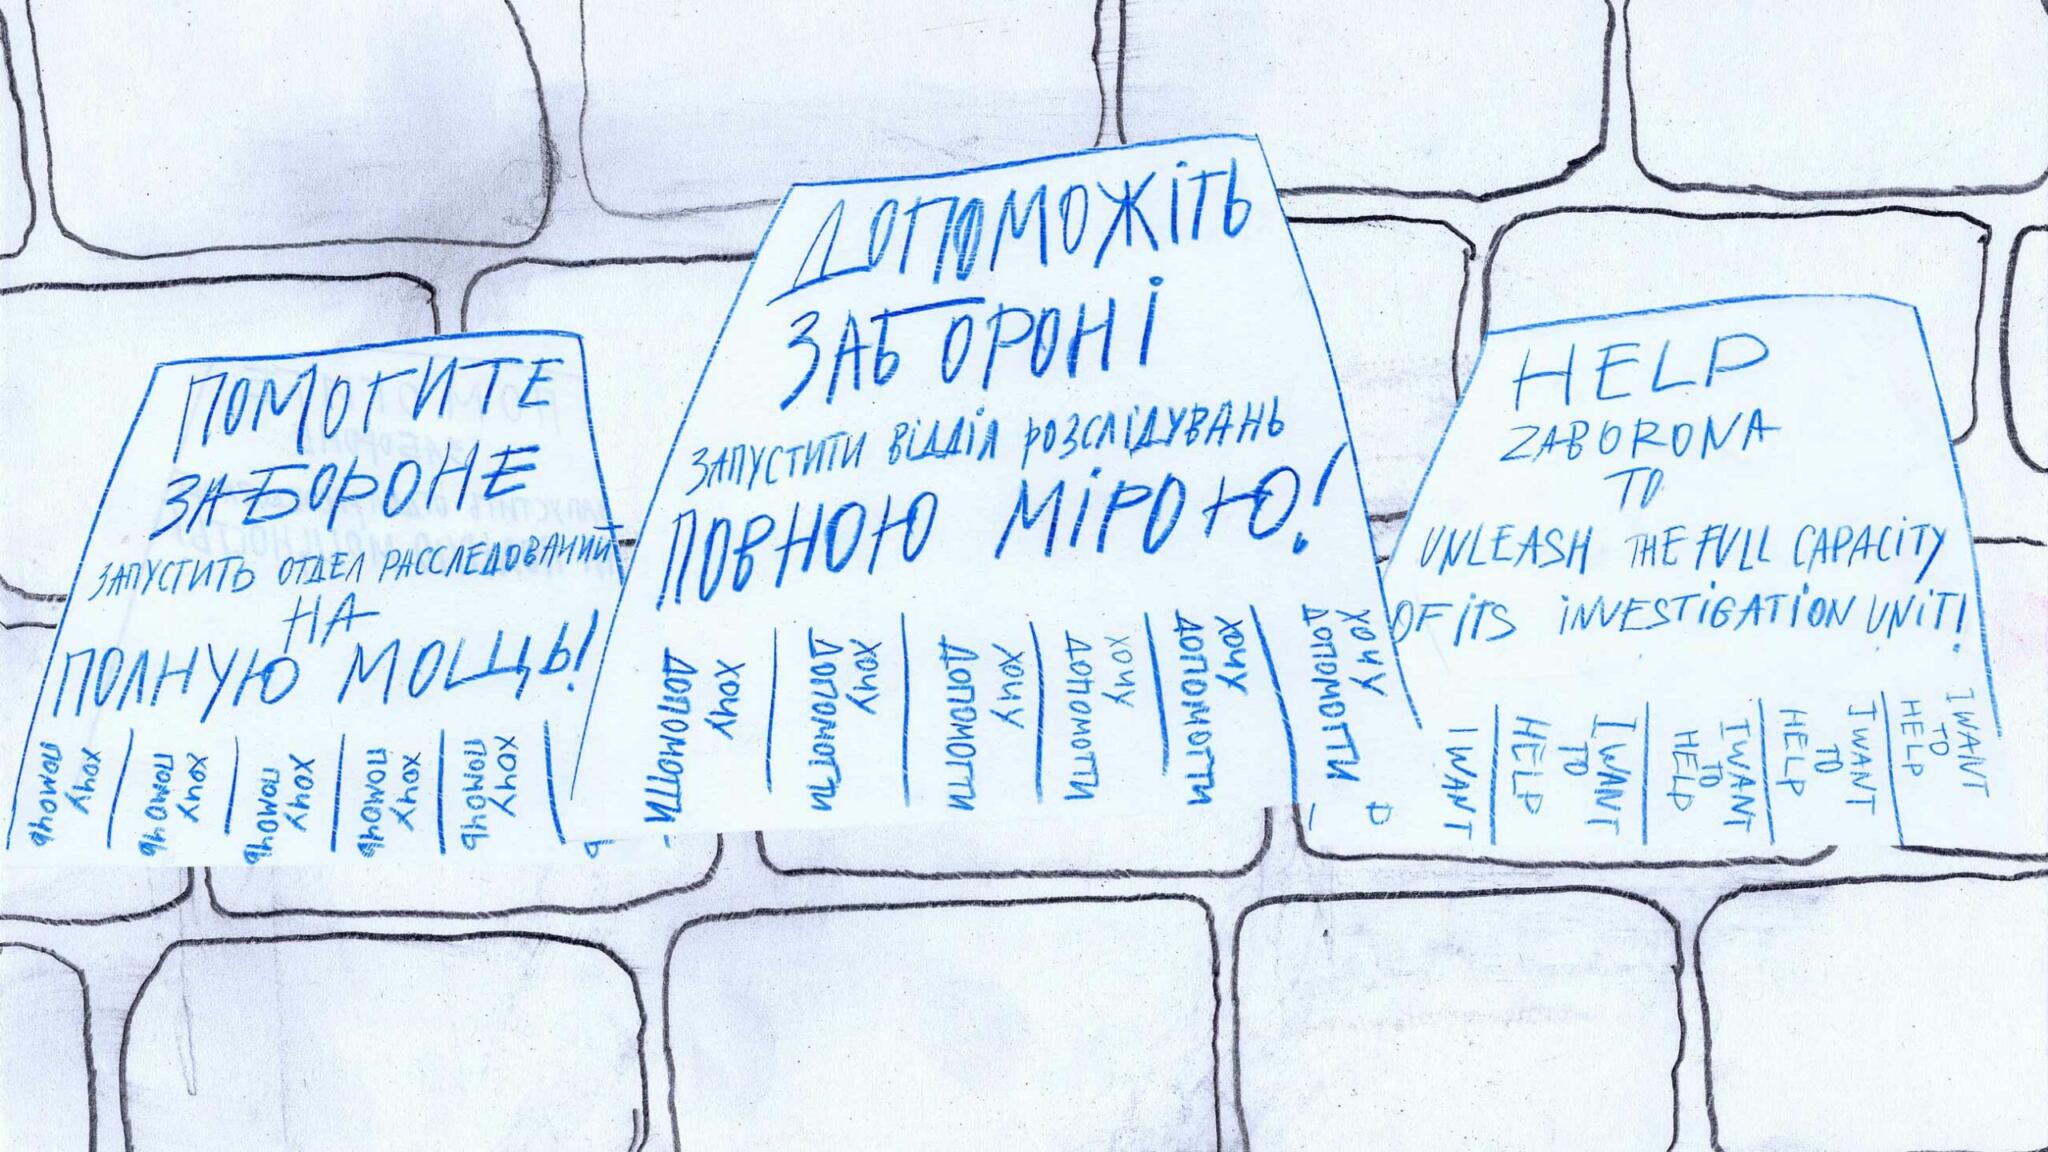 ПОМОГИТЕ
ЗАБОРОНЕ
ЗАПУСТИТЬ ОТДЕЛ РАССЛЕДОВАНИЙ
НА
ПОЛНУЮ МОЩЬ!
ХОЧУ
ПОМОЧЬ
ХОЧУ
ПОМОЧЬ
ХОЧУ
ПОМОЧЬ
ХОЧУ
ПОМОЧЬ
ХОЧУ
ПОМОЧЬ
ДОПОМОЖІТЬ
ЗАБОРОНІ
ЗАПУСТИТИ ВІДДІЛ РОЗСЛІДУВАНЬ
ПОВНОЮ МІРОЮ!
ХОЧУ
ДОПОМОГТИ
ХОЧУ
ДОПОМОГТИ
ХОЧУ
ДОПОМОГТИ
ХОЧУ
ДОПОМОГТИ
ХОЧУ
ДОПОМОГТИ
ХОЧУ
ДОПОМОГТИ
HELP
ZABORONA
TO
UNLEASH THE FULL CAPACITY
OF ITS INVESTIGATION UNIT!
I WANT
I WANT
TO
HELP
I WANT
TO
HELP
I WANT
TO
HELP
I WANT
TO
HELP